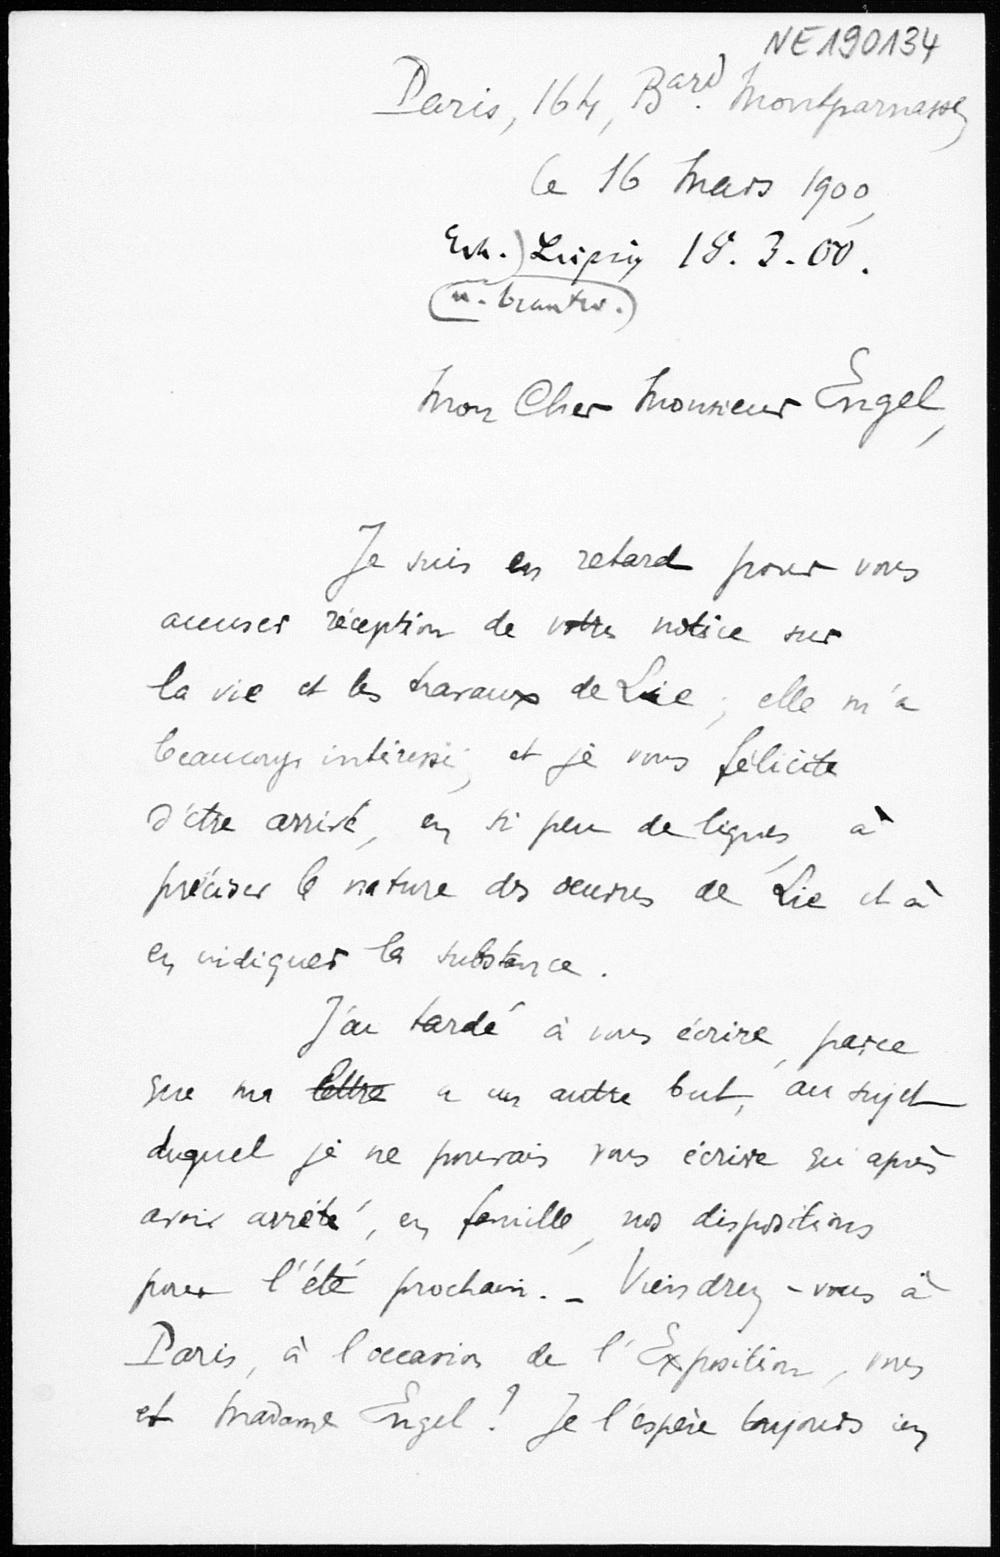 NE190134
Paris, 164, Bard. Montparnasse,
le 16 Mars 1900,
Erh.) Leipzig 18. 3. 00.
(u. beantw.)
Mon Cher Monsieur Engel,
Je suis en retard pour vous
accuser réception de votre notice sur
la vie et les travaux de Lie ; elle m'a
beaucoup intéressé, et je vous félicite
d'être arrivé, en si peu de lignes, à
préciser la nature des oeuvres de Lie et à
en indiquer la substance.
J'ai tardé à vous écrire, parce
que ma lettre a un autre but, au sujet
duquel je ne pouvais vous écrire qu'après
avoir arrêté, en famille, nos dispositions
pour l'été prochain. – Viendrez-vous à
Paris, à l'occasion de l'Exposition, vous
et Madame Engel ? Je l'espère toujours ;